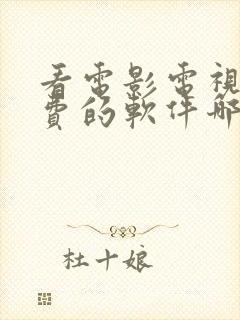 看電影電視
費的軟件哪
杜十娘